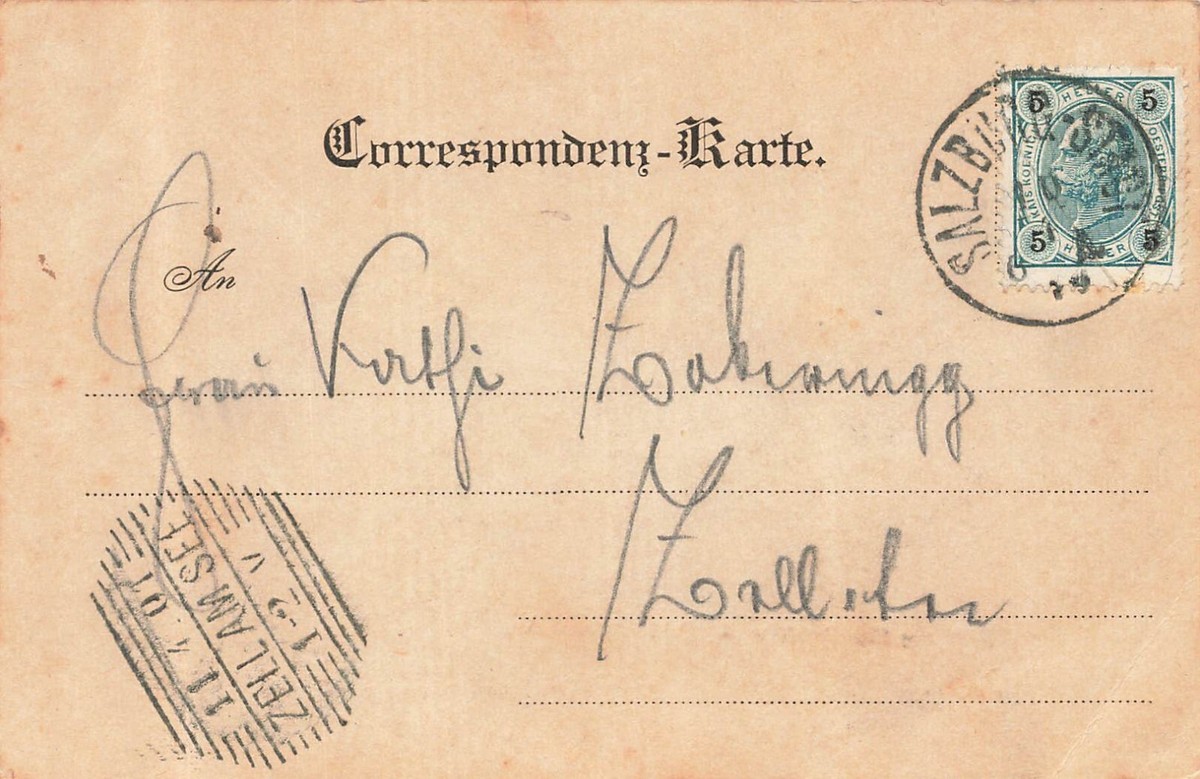 Correspondenz-Karte.
5 HELLER 5
KAIS KOENIGL OESTR POST
5 HELLER 5
SALZBURG
An
Frau Kathi
Zell.
11 4 01
ZELL AM SEE
1-2 V